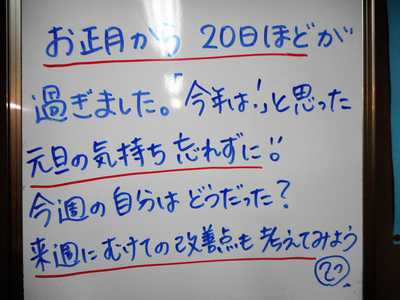 お正月から 20日ほどが
過ぎました。「今年は!」と思った
元旦の気持ち 忘れずに!!
今週の自分は どうだった?
来週にむけての改善点も 考えてみよう